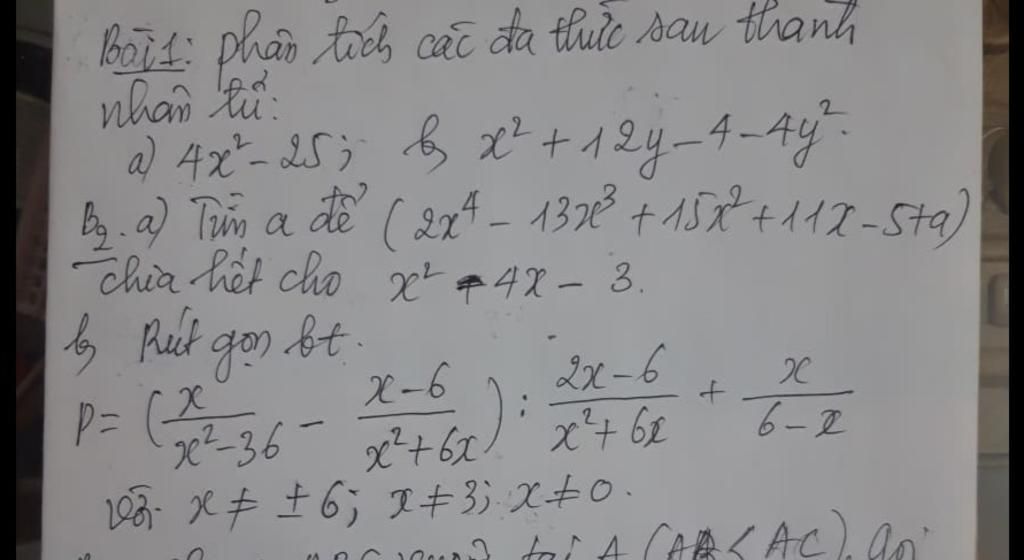 Bài 1: phân tích các đa thức sau thành
nhân tử:
a) 4x² - 25; b) x² + 12y - 4 - 4y².
B2. a) Tìm a để (2x⁴ - 13x³ + 15x² + 11x - 5 + a)
chia hết cho x² - 4x - 3.
b) Rút gọn bt.
P = (x/(x² - 36) - (x - 6)/(x² + 6x)) : (2x - 6)/(x² + 6x) + x/(6 - x)
với x ≠ ± 6; x ≠ 3; x ≠ 0.
ABC tại A (AB < AC). gọi